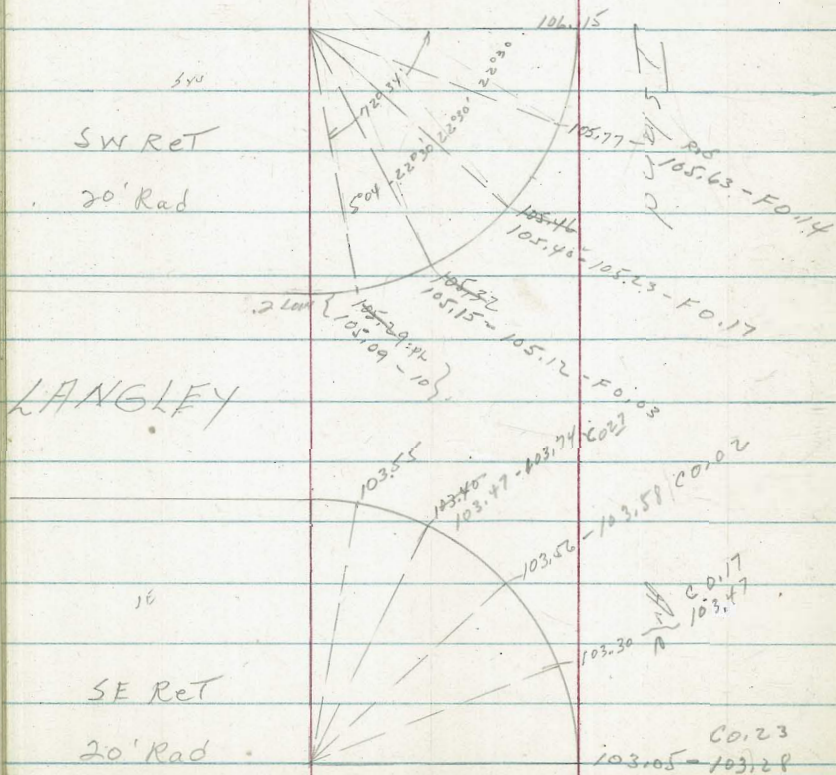 106.15
SW
SW ReT
20' Rad
72°34'
5°04' 22°30' 22°30' 22°30'
105.77 - 105.63 - F 0.14
105.46
105.40 - 105.23 - F 0.17
105.32
105.15 - 105.12 - F 0.03
.2 Low { 105.29
105.09 - 10 }
LANGLEY
103.55
103.40
103.47 - 103.74 C 0.27
103.56 - 103.58 / C 0.02
C 0.17
103.30 103.47
SE ReT
20' Rad
C 0.23
103.05 - 103.28